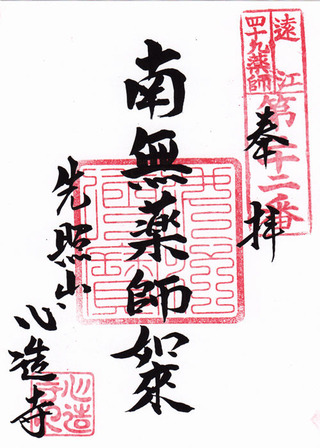 遠江
四十九薬師
第十二番
奉拝
南無薬師如来
先照山
心造寺
心造